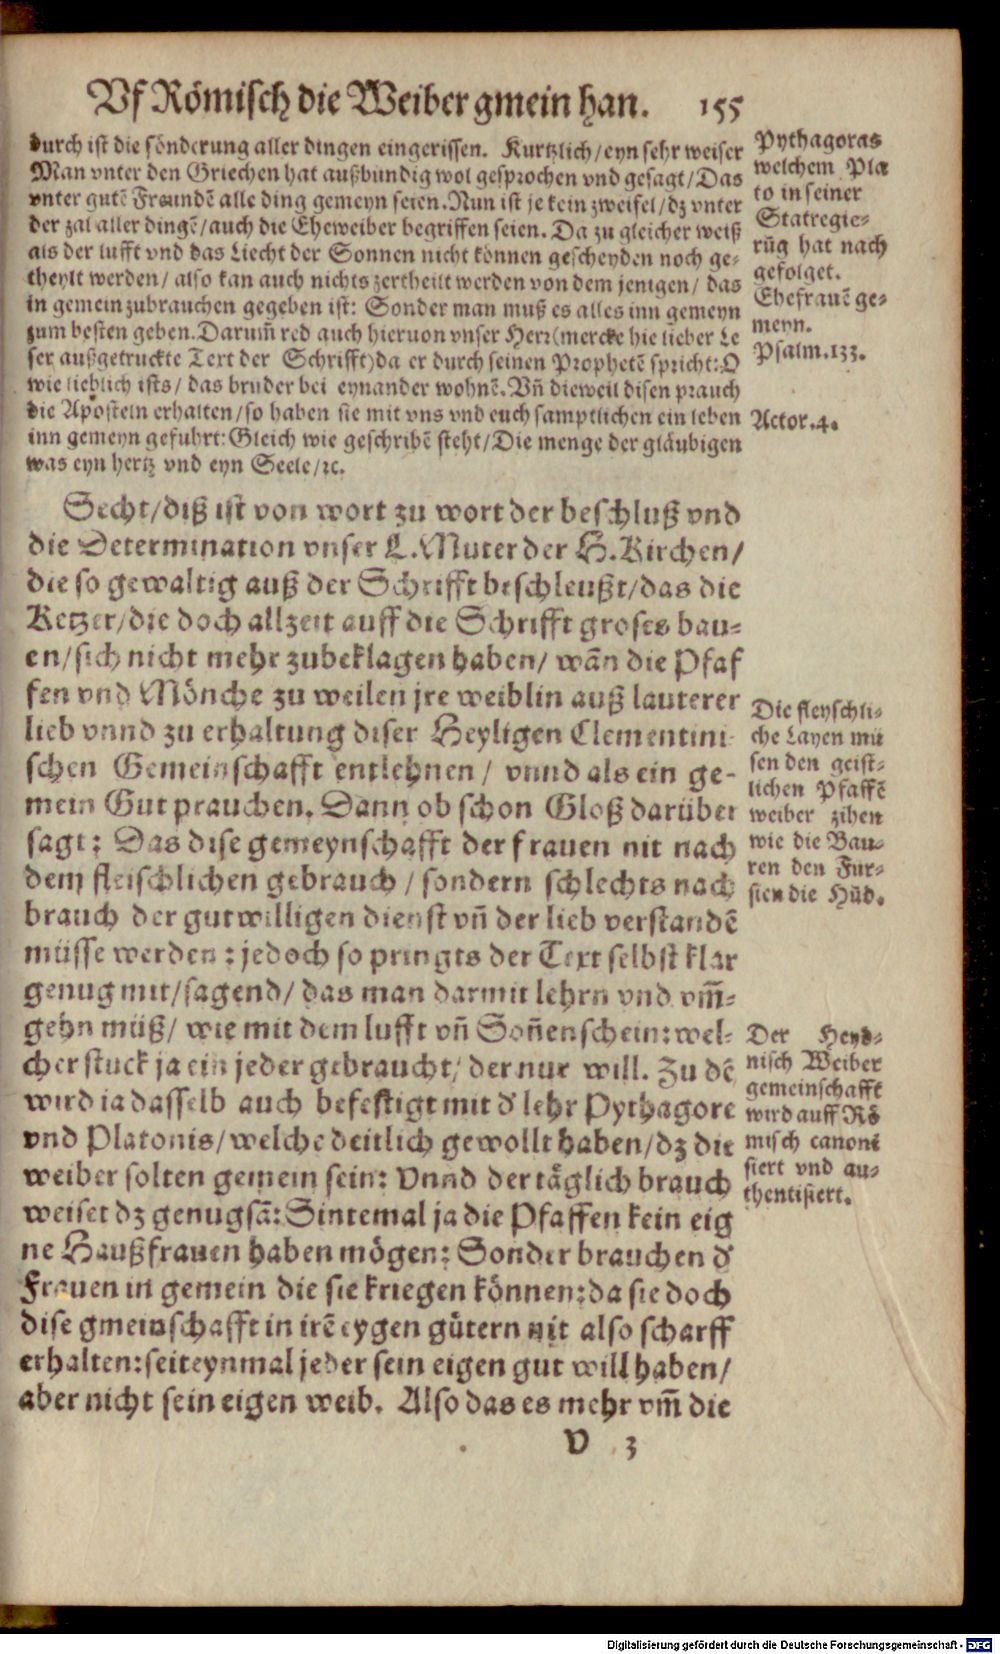 Vf Römisch die Weiber gmein han. 155
durch ist die sönderung aller dingen eingerissen. Kurtzlich/eyn sehr weiser
Man vnter den Griechen hat außbundig wol gesprochen vnd gesagt/Das
vnter gutē Freundē alle ding gemeyn seien. Nun ist je kein zweifel/dz vnter
der zal aller dingē/auch die Eheweiber begriffen seien. Da zu gleicher weiß
als der lufft vnd das Liecht der Sonnen nicht können gescheyden noch ge-
theylt werden/ also kan auch nichts zertheilt werden von dem jenigen/ das
in gemein zubrauchen gegeben ist: Sonder man muß es alles inn gemeyn
zum besten geben. Darum̄ red auch hieruon vnser Herr(mercke hie lieber Le
ser außgetruckte Text der Schrifft)da er durch seinen Prophetē spricht:O
wie lieblich ists/ das brüder bei eynander wohnē. Vn̄ dieweil disen prauch
die Aposteln erhalten/so haben sie mit vns vnd euch samptlichen ein leben
inn gemeyn gefuhrt: Gleich wie geschribē steht/Die menge der gläubigen
was eyn hertz vnd eyn Seele/ꝛc.
Pythagoras
welchem Pla
to in seiner
Statregie-
rūg hat nach
gefolget.
Ehefrauē ge-
meyn.
Psalm.133.
Actor.4.
Secht/diß ist von wort zu wort der beschluß vnd
die Determination vnser L. Muter der H. Kirchen/
die so gewaltig auß der Schrifft beschleußt/das die
Ketzer/die doch allzeit auff die Schrifft groses bau-
en/sich nicht mehr zubeklagen haben/ wān die Pfaf
fen vnd Mönche zu weilen jre weiblin auß lauterer
lieb vnnd zu erhaltung diser Heyligen Clementini-
schen Gemeinschafft entlehnen/ vnnd als ein ge-
mein Gut prauchen. Dann ob schon Gloß darüber
sagt: Das dise gemeynschafft der frauen nit nach
dem fleischlichen gebrauch/ sondern schlechts nach
brauch der gutwilligen dienst vn̄ der lieb verstandē
müsse werden: jedoch so pringts der Text selbst klar
genug mit/sagend/ das man darmit lehrn vnd vm̄-
gehn müß/ wie mit dem lufft vn̄ Son̄enschein: wel-
cher stuck ja ein jeder gebraucht/ der nur will. Zu dē
wird ia dasselb auch befestigt mit d' lehr Pythagore
vnd Platonis/welche deitlich gewollt haben/dz die
weiber solten gemein sein: Vnnd der täglich brauch
weiset dz genugsā: Sintemal ja die Pfaffen kein eig
ne Haußfrauen haben mögen: Sonder brauchen d'
Frauen in gemein die sie kriegen können: da sie doch
dise gmeinschafft in irē eygen gütern nit also scharff
erhalten: seiteynmal jeder sein eigen gut will haben/
aber nicht sein eigen weib. Also das es mehr vm̄ die
Die fleyschli-
che Layen mü
sen den geist-
lichen Pfaffē
weiber zihen
wie die Bau-
ren den Fur-
sten die Hūd.
Der Heyd-
nisch Weiber
gemeinschafft
wird auff Rö
misch canoni
siert vnd au-
thentisiert.
V 3
Digitalisierung gefördert durch die Deutsche Forschungsgemeinschaft - DFG